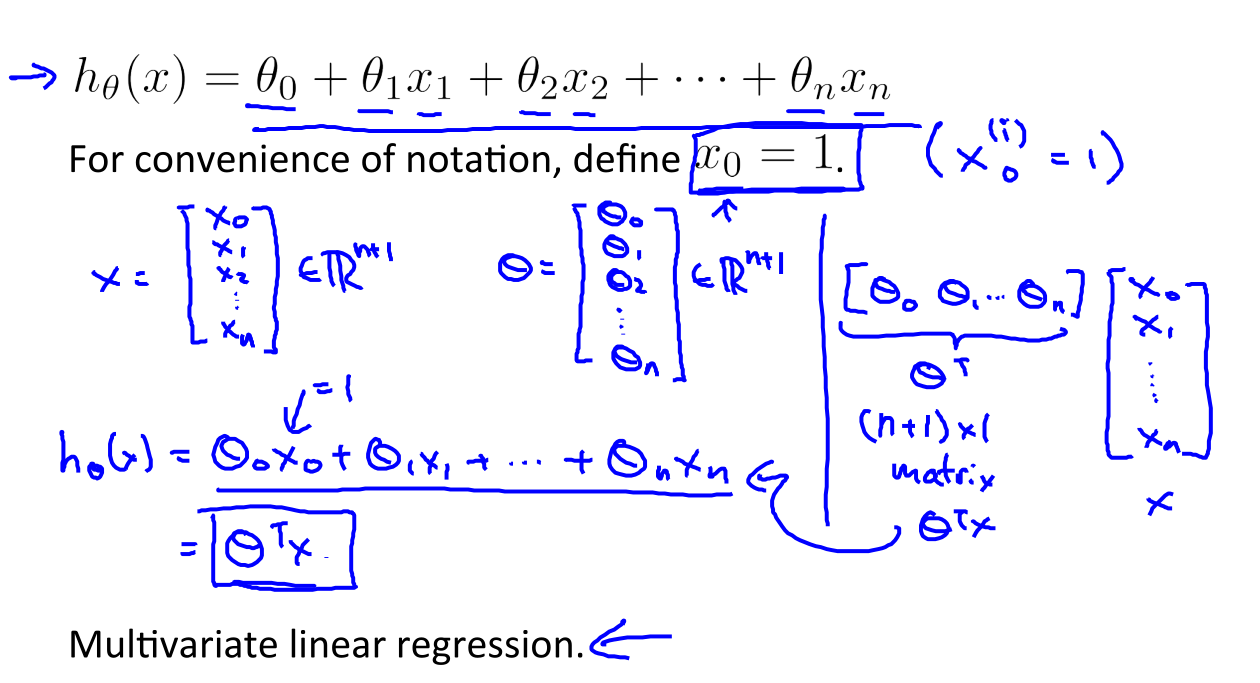 → hθ(x) = θ₀ + θ₁x₁ + θ₂x₂ + ⋯ + θₙxₙ
For convenience of notation, define x₀ = 1. (x₀⁽ⁱ⁾ = 1)
x = [x₀ x₁ x₂ ⋮ xₙ] ∈ ℝⁿ⁺¹
θ = [θ₀ θ₁ θ₂ ⋮ θₙ] ∈ ℝⁿ⁺¹
= 1
hθ(x) = θ₀x₀ + θ₁x₁ + ⋯ + θₙxₙ
= θᵀx
[θ₀ θ₁ ⋯ θₙ] [x₀ x₁ ⋮ xₙ]
θᵀ
(n+1)×1
matrix
x
θᵀx
Multivariate linear regression. ←